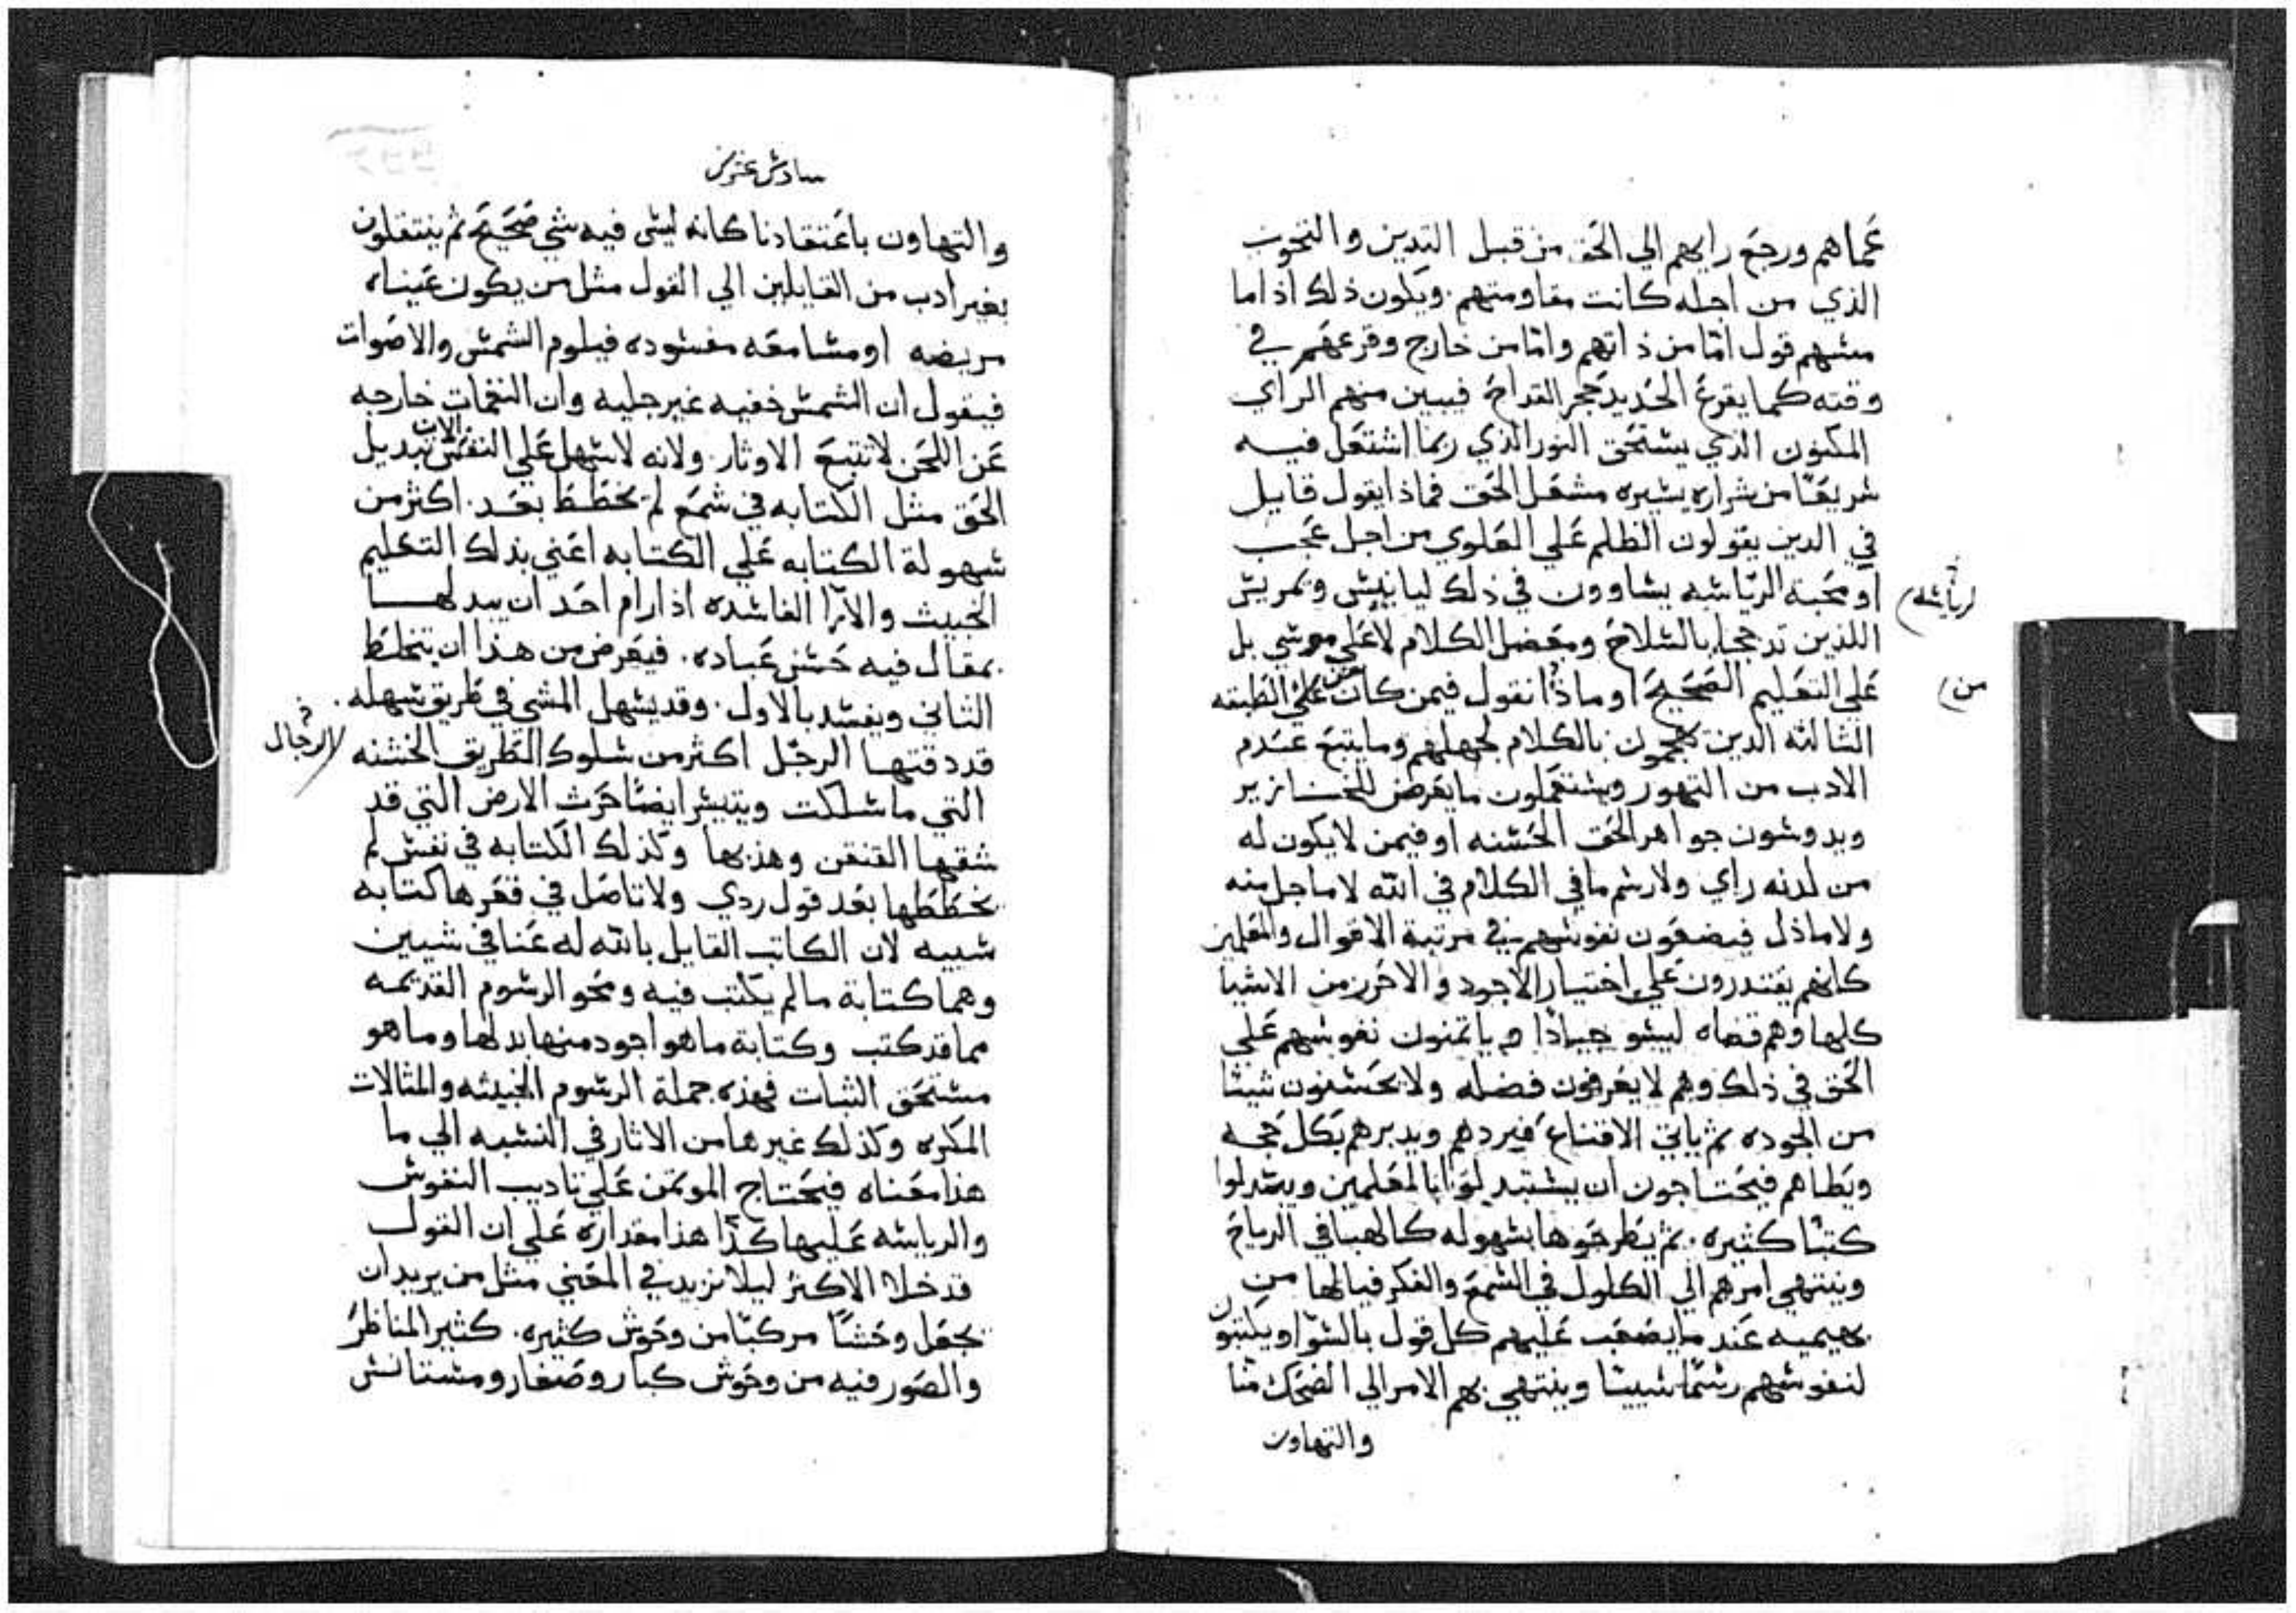 عماهم ورجع رايهم الي الحق من قبل التدين والتحوب
الذي من اجله كانت مقاومتهم. ويكون ذلك اذا ما
مسهم قول امّا من ذاتهم وامّا من خارج وقرعهم في
وقته كما يقرع الحديد حجر القداح فيبين منهم الراي
المكنون الذي يستحق النور الذي ربما اشتعل فيه
سريعًا من شراره يسيره مشعل الحق فماذا يقول قايل
في الدين يقولون الظلم علي العلوي من اجل عجب
او محبة الرياسه يساوون في ذلك ليانيس ويمريس
لرياسه
اللذين تدججا بالسلاح وبعضل الكلام لا علي موسي بل
علي التعليم الصحيح او ماذا نقول فيمن كان من علي الطبقه
من
الثالثه الدين يهجمون بالكلام لجهلهم وما يتبع عدم
الادب من التهور ويستعملون ما يعرض للخنازير
ويدوسون جواهر الحق الحسنه او فيمن لا يكون له
من لدنه راي ولا رسم ما في الكلام في الله لا ما جل منه
ولا ما ذل فيضعون نفوسهم في مرتبة الاقوال والمعلمين
كانهم يقتدرون علي اختيار الاجود والاحرز من الاشيا
كلها وهم قضاه ليسو جيادًا و ياتمنون نفوسهم علي
الحق في ذلك وهم لا يعرفون فضله ولا يحسنون شيئا
من الجوده ثم ياتي الاقناع فيردهم ويدبرهم بكل حجه
ويطاهم فيحتاجون ان يستبدلوا بالمعلمين ويبتدلوا
كتبًا كثيره. ثم يطرحوها بسهوله كالهبا في الرياح
وينتهي امرهم الي الكلول في السمع والفكر فيالها من
بهيميه عند ما يصعب عليهم كل قول بالسوا ويكتبون
لنفوسهم رسمًا سيئا وينتهي بهم الامر الي الضحك منا
والتهاون
سادس عشر
والتهاون باعتقادنا كانه ليس فيه شي صحيح ثم ينتقلون
بغير ادب من القايلين الي القول مثل من يكون عيناه
مريضه او مسامعه مفسوده فيلوم الشمس والاصوات
فيقول ان الشمس خفيه غير جليه وان النغمات خارجه
عن اللحن لا تتبع الاوتار. ولانه لا يسهل علي النفس الات تبديل
الحق مثل الكتابه في شمع لم يخطط بعد. اكثر من
سهولة الكتابه علي الكتابه اعني بذلك التعليم
الخبيث والارا الفاسده اذا رام احد ان يبدلها
بمقال فيه حسن عباده. فيعرض من هذا ان يتخلط
الثاني ويفسد بالاول. وقد يسهل المشي في طريق سهله
قد دقتها الرجل اكثر من سلوك الطريق الخشنه
الرجال
التي ما سلكت ويتيسر ايضًا حرث الارض التي قد
شقها القنقن وهذبها وكذلك الكتابه في نفس لم
يخططها بعد قول ردي ولا تاصل في قعرها كتابه
سييه لان الكاتب القايل بالله له عنا في شيين
وهما كتابة ما لم يكتب فيه ومحو الرسوم القديمه
مما قد كتب وكتابة ما هو اجود منها بدلها وما هو
مستحق الثبات فهذه جملة الرسوم الخبيثه والمثالات
المكره وكذلك غيرها من الاثار في النسبه الي ما
هذا معناه فيحتاج الموتمن علي تاديب النفوس
والرياسه عليها كدًا هذا مقداره علي ان القول
قد خلا الاكثر ليلا نزيد في المعني مثل من يريد ان
يجعل وحشًا مركبًا من وحوش كثيره. كثير المناظر
والصور فيه من وحوش كبار وصغار ومستانس